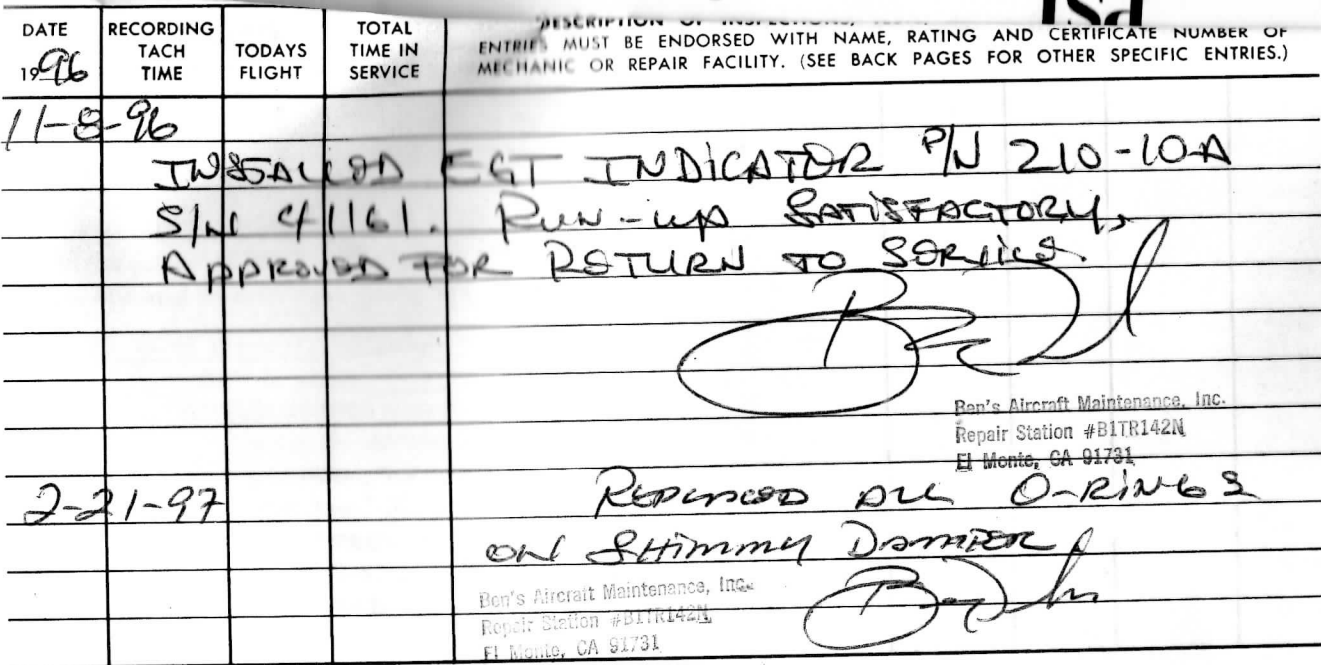 DATE
1996
RECORDING
TACH
TIME
TODAYS
FLIGHT
TOTAL
TIME IN
SERVICE
DESCRIPTION OF INSPECTIONS,
ENTRIES MUST BE ENDORSED WITH NAME, RATING AND CERTIFICATE NUMBER OF
MECHANIC OR REPAIR FACILITY. (SEE BACK PAGES FOR OTHER SPECIFIC ENTRIES.)
11-8-96
INSTALLED EGT INDICATOR P/N 210-10A
S/N 41161. RUN-UP SATISFACTORY.
APPROVED FOR RETURN TO SERVICE.
Ben's Aircraft Maintenance, Inc.
Repair Station #B1TR142N
El Monte, CA 91731
2-21-97
REPLACED ALL O-RINGS
ON SHIMMY DAMPER
Ben's Aircraft Maintenance, Inc.
Repair Station #B1TR142N
El Monte, CA 91731